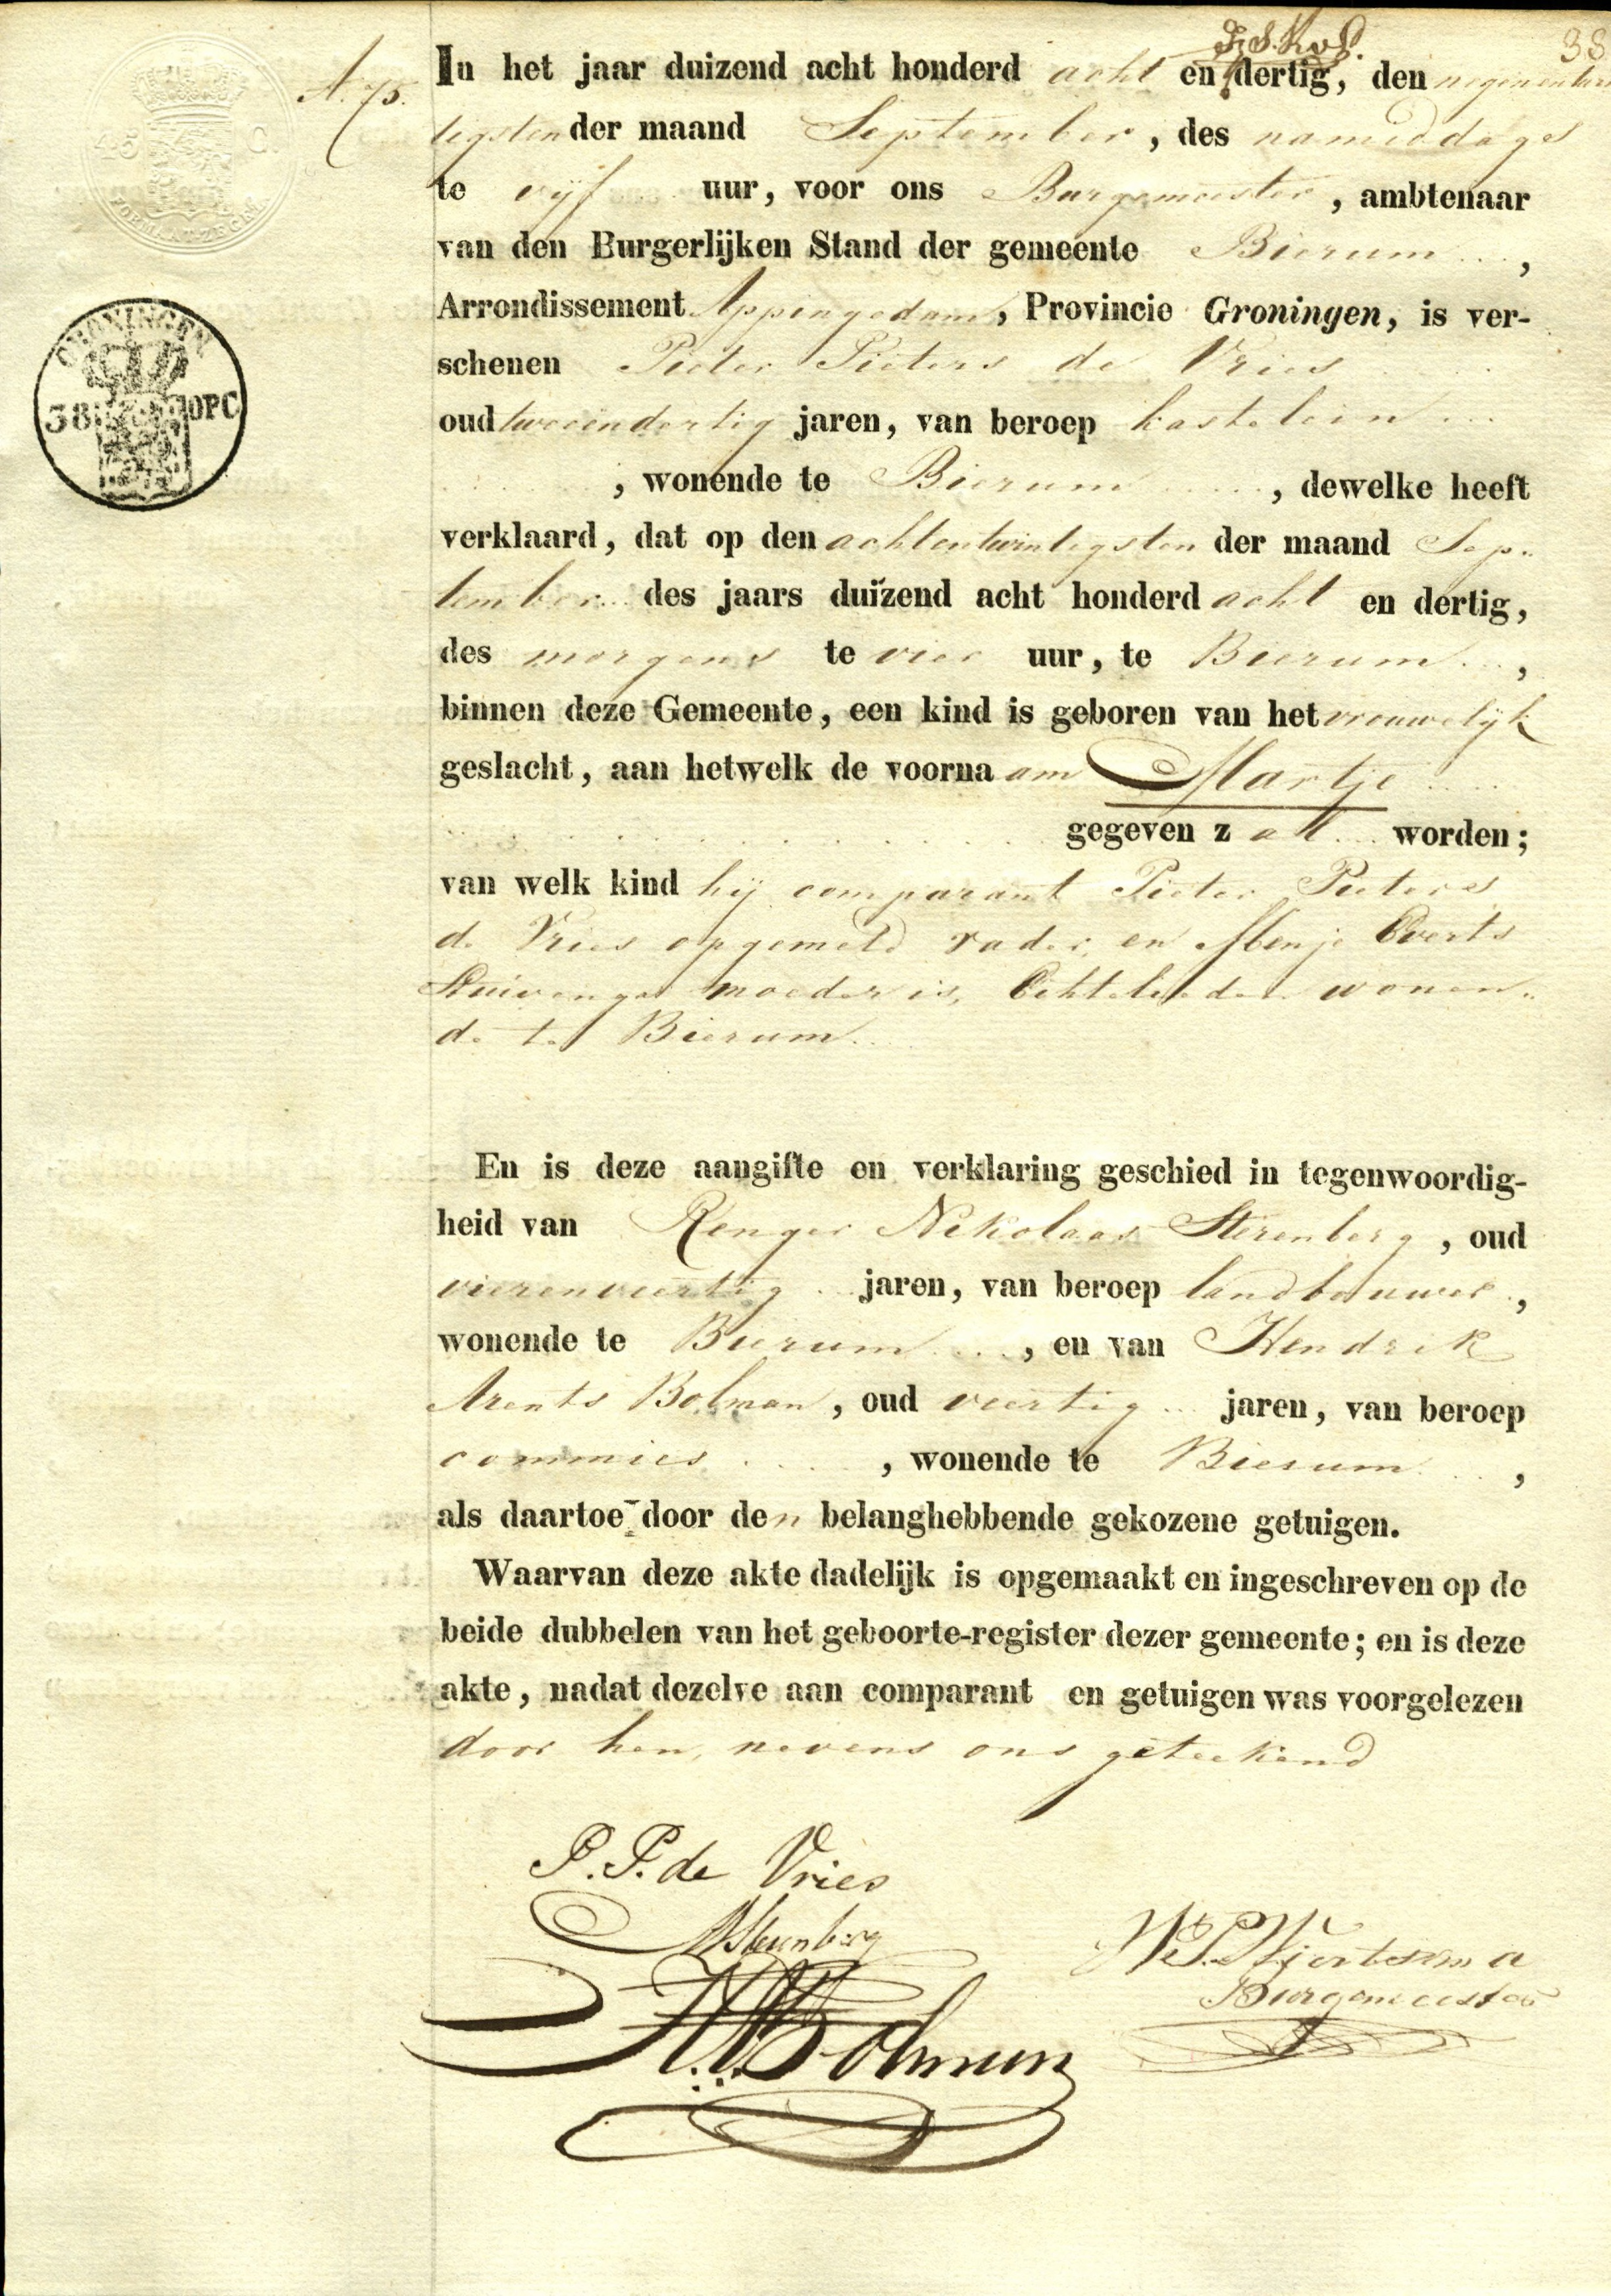 38
A. 75.
45 C.
FORMAATZEGEL
GRONINGEN
38 OPC
In het jaar duizend acht honderd acht en dertig, den negenentwin
tigsten der maand September, des namiddags
te vijf uur, voor ons Burgemeester, ambtenaar
van den Burgerlijken Stand der gemeente Bierum,
Arrondissement Appingedam, Provincie Groningen, is ver-
schenen Pieter Pieters de Vries
oud tweeendertig jaren, van beroep kastelein
, wonende te Bierum, dewelke heeft
verklaard, dat op den achtentwintigsten der maand Sep-
tember des jaars duizend acht honderd acht en dertig,
des morgens te vier uur, te Bierum,
binnen deze Gemeente, een kind is geboren van het vrouwelijk
geslacht, aan hetwelk de voornaam Martje
gegeven zal worden;
van welk kind hij comparant Pieter Pieters
de Vries opgemeld vader, en Menje Everts
Stuivenga moeder is, Echtelieden wonen-
de te Bierum
En is deze aangifte en verklaring geschied in tegenwoordig-
heid van Renger Nikolaas Sterenberg, oud
vierenveertig jaren, van beroep landbouwer,
wonende te Bierum, en van Hendrik
Arents Bolman, oud veertig jaren, van beroep
commies, wonende te Bierum,
als daartoe door den belanghebbende gekozene getuigen.
Waarvan deze akte dadelijk is opgemaakt en ingeschreven op de
beide dubbelen van het geboorte-register dezer gemeente; en is deze
akte, nadat dezelve aan comparant en getuigen was voorgelezen
door hen, nevens ons geteekend
P. P. de Vries
Sterenberg
H. A. Bolman
Burgemeester